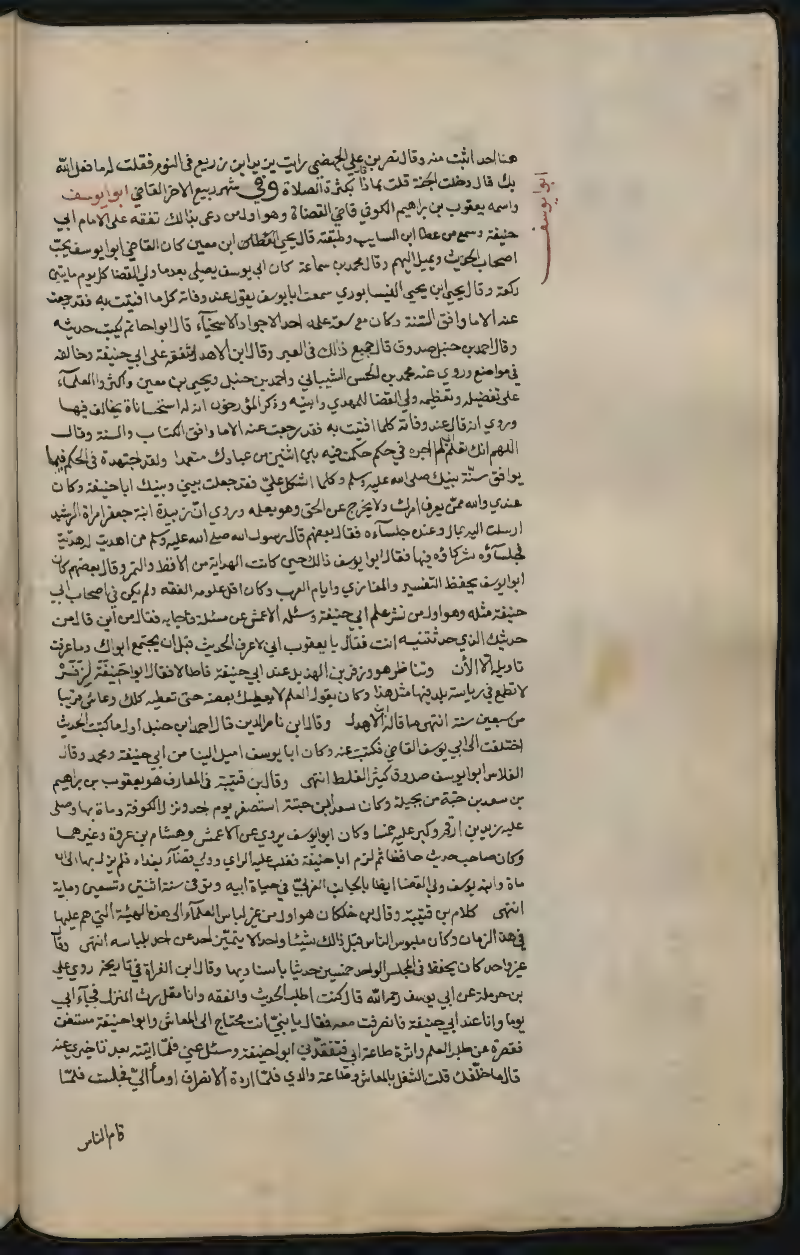 هنا احد اثبت منه وقال نصر بن علي الجهضمي رايت يزيد ابن زريع في النوم فقلت له ما فعل الله
بك قال دخلت الجنة قلت بماذا قال بكثرة الصلاة وفي شهر ربيع الاخر القاضي ابو يوسف
ابو يوسف
واسمه يعقوب بن براهيم الكوفي قاضي القضاة وهو اول من دعى بذالك تفقه على الامام ابي
حنيفة وسمع من عطا ابن السايب وطبقته قال يحيى ابن معين كان القاضي ابو يوسف يحب
اصحاب الحديث ويميل اليهم وقال محمد بن سماعة كان ابي يوسف يصلي بعد ما ولي القضا كل يوم مايتي
ركعة وقال يحيى ابن يحيى النيسابوري سمعت ابا يوسف يقول عند وفاته كل ما افتيت به فقد رجعت
عنه الا ما وافق السنة وكان مع سعة علمه احد الاجواد الاسخيآء قال ابو حاتم يكتب حديثه
وقال احمد بن حنبل صدوق قال جميع ذالك في العبر وقال ابن الاهدل تفقه على ابي حنيفة وخالفه
في مواضع وروي عنه محمد بن الحسن الشيباني واحمد بن حنبل ويحيى بن معين واكثروا العلمآء
على تفضيله وتعظيمه ولي القضا للمهدي وابنيه وذكر المؤرخون ان له استحسانات يخالف فيها
وروي انه قال عند وفاته كلما افتيت به فقد رجعت عنه الا ما وافق الكتاب والسنة وقال
اللهم انك تعلم اني لم اجر في حكم حكمت فيه بين اثنين من عبادك متعمدا ولقد اجتهدت في الحكم فيما
يوافق سنة نبيك صلى الله عليه وسلم وكلما اشكل علي فقد جعلت بيني وبينك ابا حنيفة وكان
عندي والله ممن يعرف امرك ولا يخرج عن الحق وهو يعلمه وروي ان زبيدة ابنة جعفر امراة الرشيد
ارسلت اليه بمال وعنده جلسآءه فقال بعضهم قال رسول الله صلى الله عليه وسلم من اهديت له هدية
فجلسآؤه شركاؤه فيها فقال ابو يوسف ذالك حين كانت الهداية من الاقط والتمر وقال بعضهم كان
ابو يوسف يحفظ التفسير والمغازي وايام العرب وكان اقل علومه الفقه ولم يكن في اصحاب ابي
حنيفة مثله وهو اول من نشر علم ابي حنيفة وسئله الاعمش عن مسئلة فاجابه فقال من اين قال من
حديثك الذي حدثتنيه انت فقال يا يعقوب اني لاعرف الحديث قبل ان يجتمع ابواك وما عرفت
تاويله الا الأن وتناظر هو وزفر بن الهذيل عند ابي حنيفة فاطالا فقال ابو حنيفة لزفر
لا تطمع في رياسة بلد فيها مثل هذا وكان يقول العلم لا يعطيك بعضه حتى تعطيه كلك وعاش قريبا
من سبعين سنة انتهى ما قاله ابن الاهدل وقال ابن ناصر الدين قال احمد ابن حنبل اول ما كتبت الحديث
اختلفت الى ابي يوسف القاضي فكتبت عنه وكان ابا يوسف اميل الينا من ابي حنيفة ومحمد وقال
الفلاس ابو يوسف صدوق كثير الغلط انتهى وقال بن قتيبة في المعارف هو يعقوب بن براهيم
بن سعد بن حبتة من بجيلة وكان سعد ابن حبتة استصغر يوم احد ونزل الكوفة ومات بها وصلى
عليه زيد بن ارقم وكبر عليه خمسا وكان ابو يوسف يروي عن الاعمش وهشام بن عروة وغيرهما
وكان صاحب حديث حافظا ثم لزم ابا حنيفة فغلب عليه الراي وولي قضآء بغداد فلم يزل بها الى ان
مات وابنه يوسف ولي القضا ايضا بالجانب الغربي في حياة ابيه وتوفى سنة اثنتين وتسعين وماية
انتهى كلام بن قتيبة وقال ابن خلكان هو اول من غير لباس العلمآء الى هذه الهيئة التي هم عليها
في هذه الزمان وكان ملبوس الناس قبل ذالك شيئا واحدا لا يتميز احد عن احد بلباسه انتهى وقال
غير واحد كان يحفظ في المجلس الواحد خمسين حديثا باسناديها وقال ابن الفراة في تاريخه روي علي
بن حرملة عن ابي يوسف رحمه الله قال كنت اطلب الحديث والفقه وانا مقل رث المنزل فجآء ابي
يوما وانا عند ابي حنيفة فانصرفت معه فقال يا بني انت محتاج الى المعاش وابو حنيفة مستغن
فقصرت عن طلب العلم واثرت طاعة ابي فتفقدني ابو حنيفة وسئل عني فلما اتيته بعد تاخري عنه
قال ما خلفك قلت الشغل بالمعاش وطاعة والدي فلما اردة الانصراف اومأ الي فجلست فلما
قام الناس